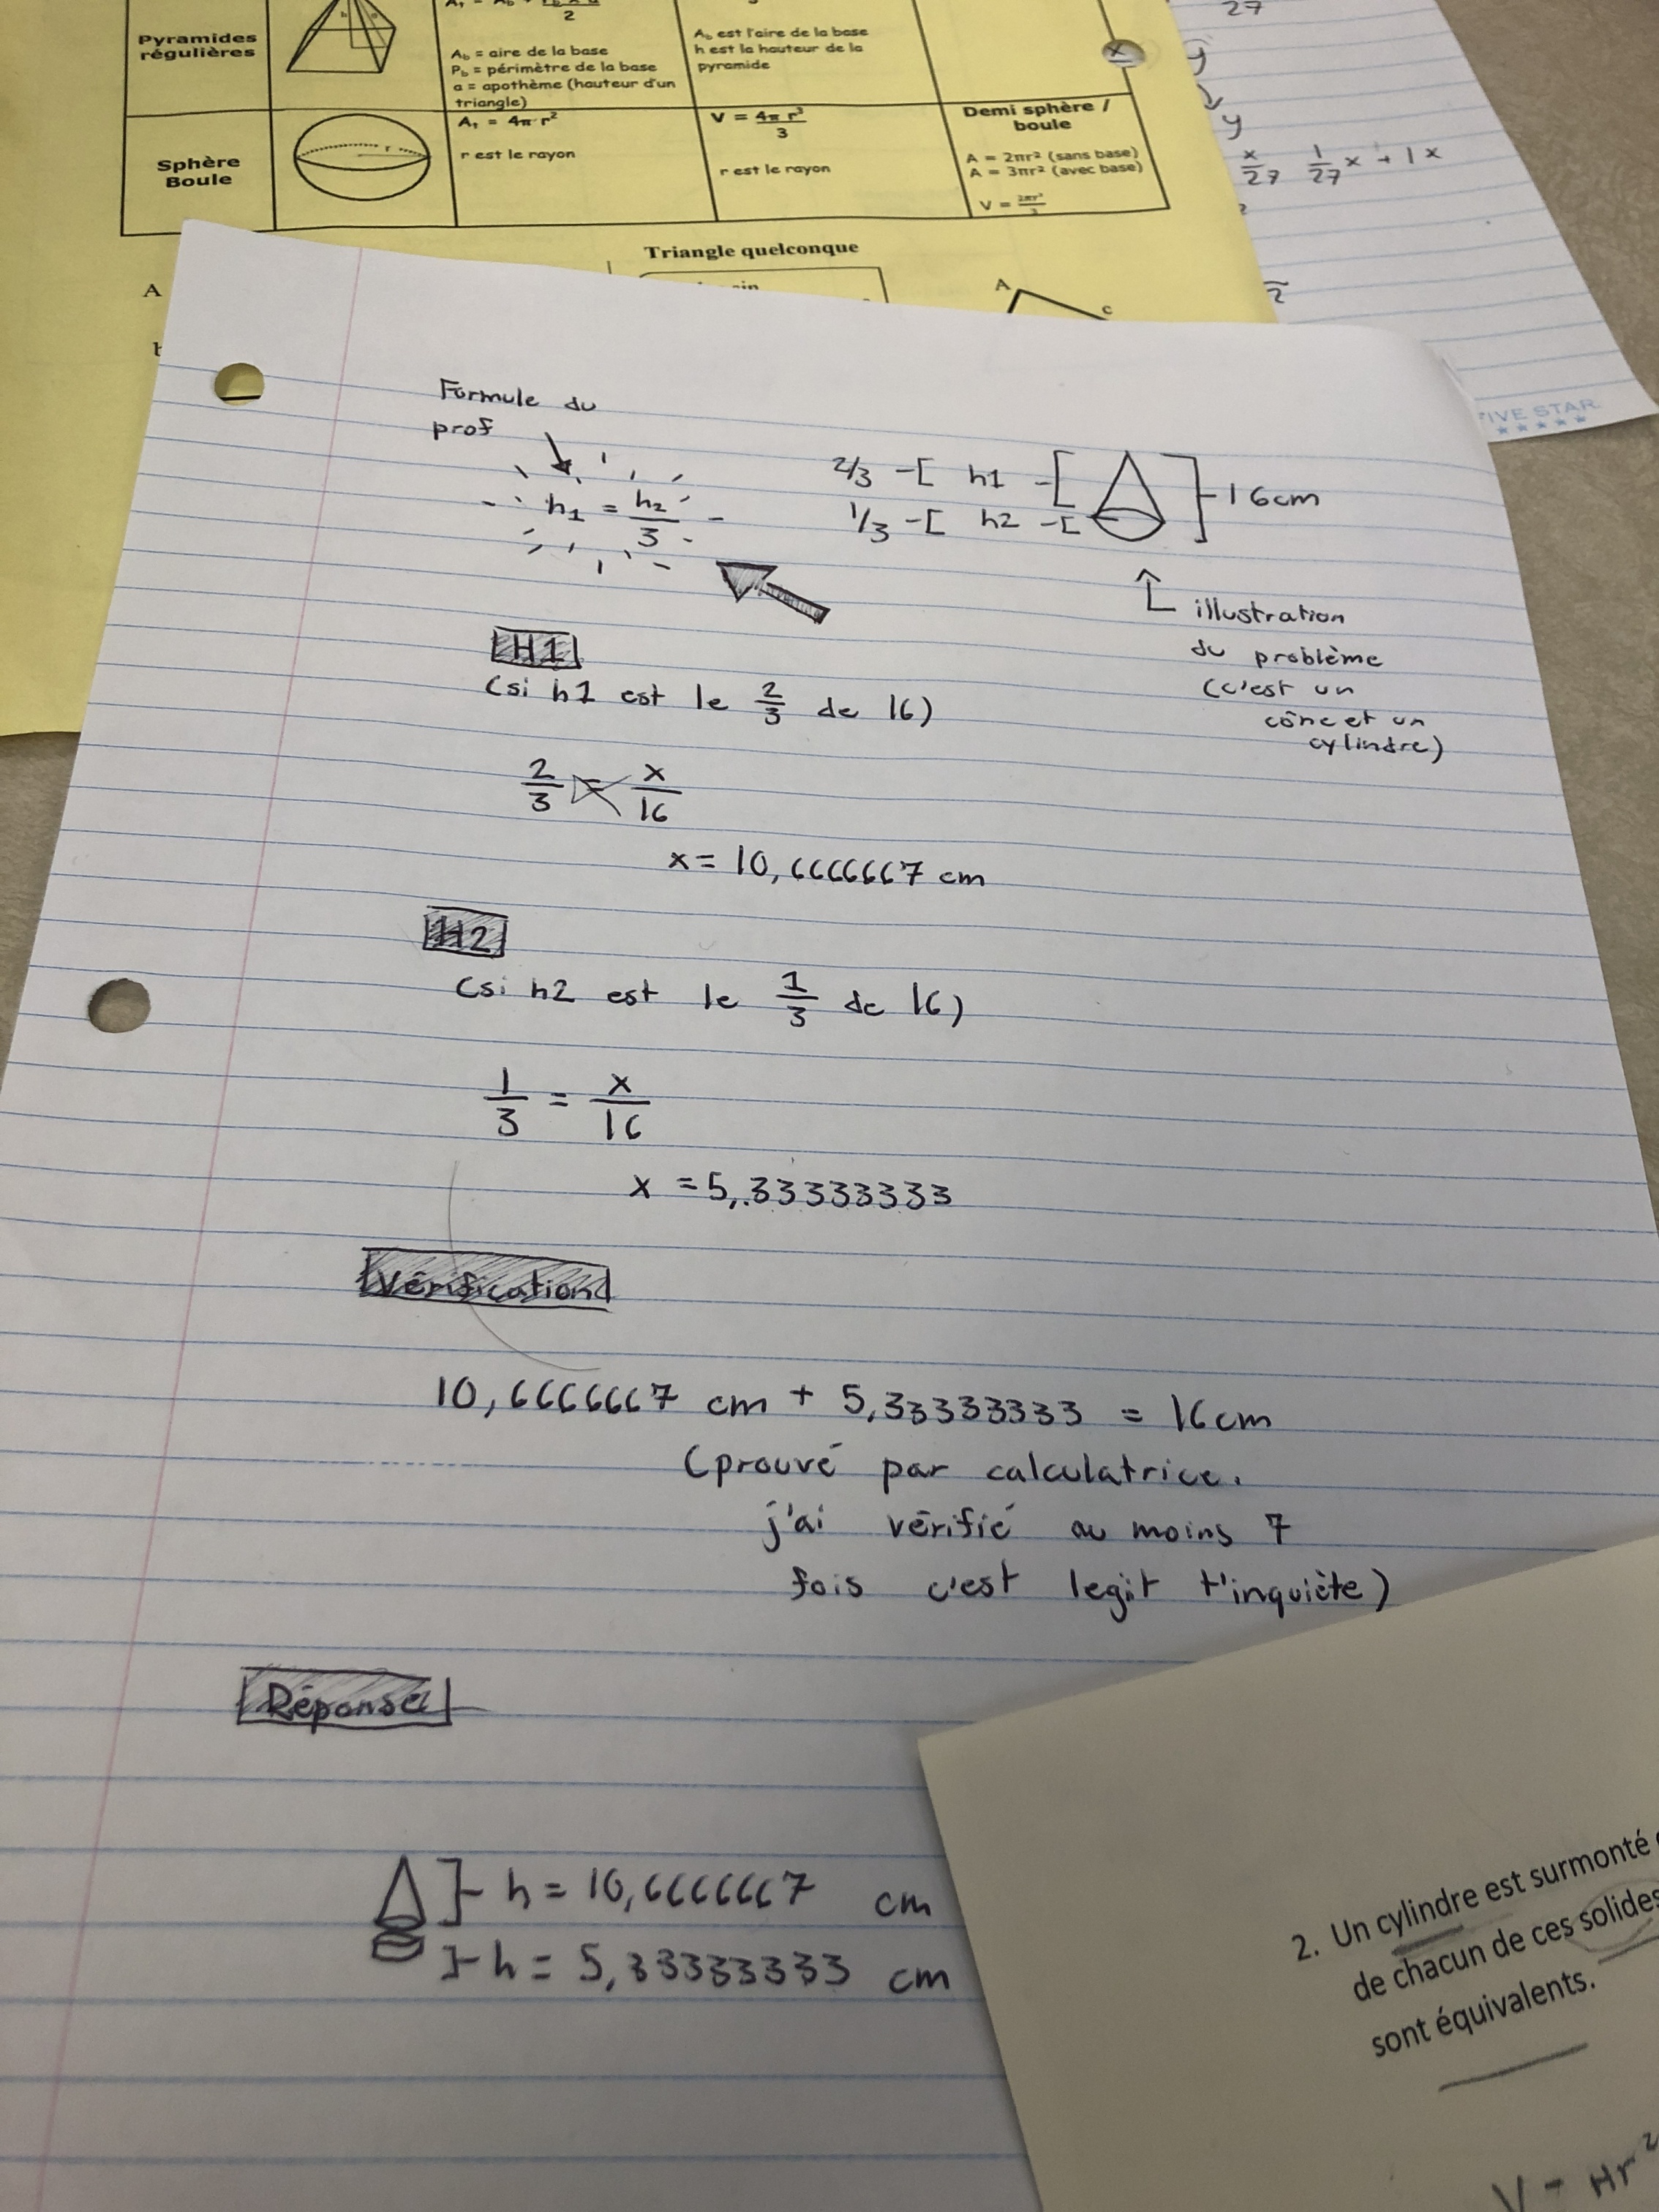 Pyramides
régulières
2
A_b = aire de la base
P_b = périmètre de la base
a = apothème (hauteur d'un
triangle)
A_b est l'aire de la base
h est la hauteur de la
pyramide
Sphère
Boule
r
A_T = 4π r²
r est le rayon
V = 4π r³
3
r est le rayon
Demi sphère /
boule
A = 2πr² (sans base)
A = 3πr² (avec base)
V = 2πr³
3
Triangle quelconque
A
A
c
27
y
y
x/27 1/27 x + 1x
IVE STAR
Formule du
prof
h1 = h2/3
2/3 -[ h1 -[
1/3 -[ h2 -[
16cm
illustration
du problème
(c'est un
cône et un
cylindre)
H1
(si h1 est le 2/3 de 16)
2/3 = x/16
x = 10,6666667 cm
H2
(si h2 est le 1/3 de 16)
1/3 = x/16
x = 5,33333333
Vérification
10,6666667 cm + 5,33333333 = 16cm
(prouvé par calculatrice.
j'ai vérifié au moins 7
fois c'est legit t'inquiète)
Réponse
h = 10,6666667 cm
h = 5,33333333 cm
2. Un cylindre est surmonté
de chacun de ces solides
sont équivalents.